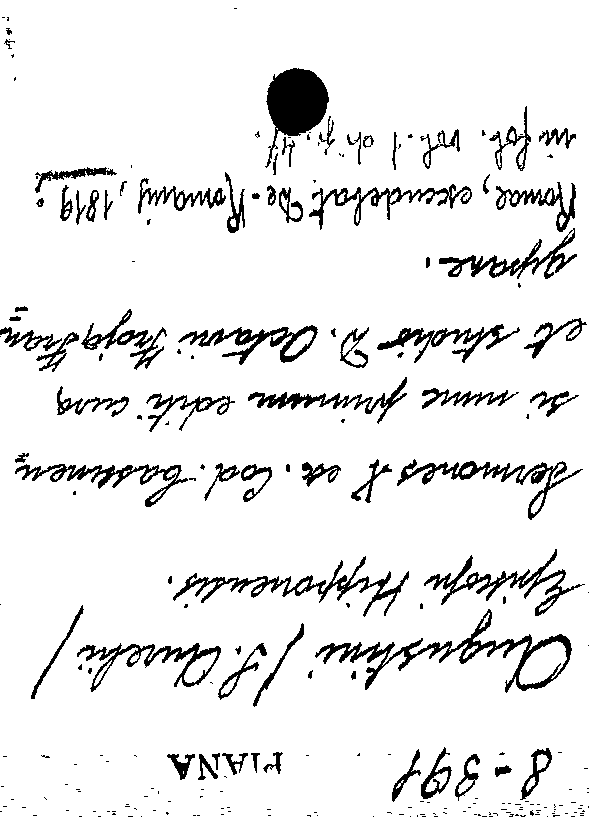 8-391 PIANA
Augustini / S. Aurelii /
Episcopi Hipponensis.
Sermones X ex. Cod. Cassinen=
si nunc primum editi cura
et studio D. Octavii Fraja Fran=
gipane.
Romae, excudebat De-Romanis, 1819.
in fol. vol. 1 di p. 47.